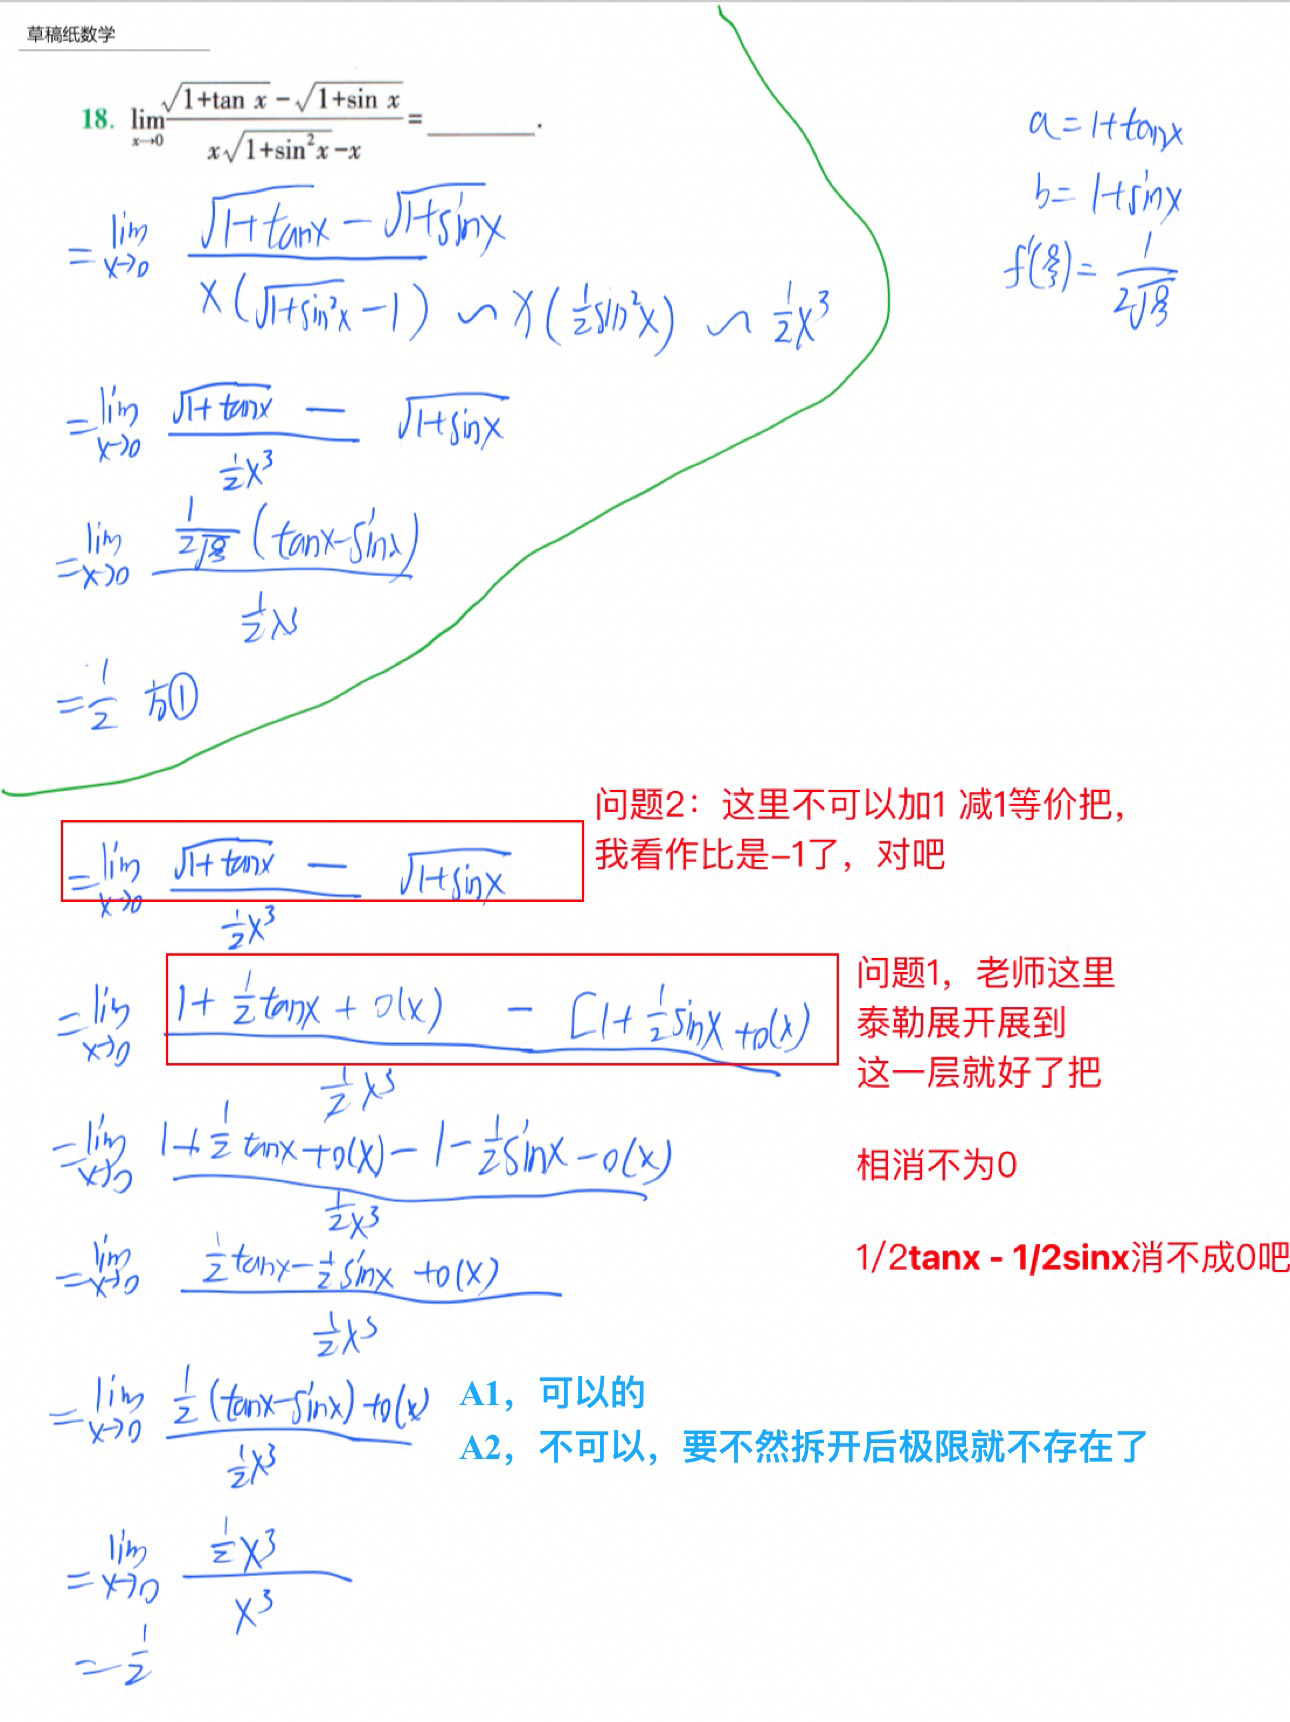 草稿纸数学
18. lim x→0 (√(1+tan x) − √(1+sin x)) / (x√(1+sin²x) − x) = ________.
a = 1+tanx
b = 1+sinx
f'(ξ) = 1/(2√ξ)
= lim x→0 (√(1+tanx) − √(1+sinx)) / (x(√(1+sin²x) −1)) ∽ x(½sin²x) ∽ ½x³
= lim x→0 (√(1+tanx) − √(1+sinx)) / (½x³)
= lim x→0 (1/(2√ξ) (tanx−sinx)) / (½x³)
= ½ 方①
问题2：这里不可以加1 减1等价把，
我看作比是–1了，对吧
= lim x→0 (√(1+tanx) − √(1+sinx)) / (½x³)
问题1，老师这里
泰勒展开展到
这一层就好了把
= lim x→0 (1+½tanx+o(x) − [1+½sinx+o(x)) / (½x³)
= lim x→0 (1+½tanx+o(x)−1−½sinx−o(x)) / (½x³)
相消不为0
1/2tanx - 1/2sinx消不成0吧
= lim x→0 (½tanx−½sinx+o(x)) / (½x³)
= lim x→0 (½(tanx−sinx)+o(x)) / (½x³)
A1，可以的
A2，不可以，要不然拆开后极限就不存在了
= lim x→0 (½x³) / (x³)
= ½